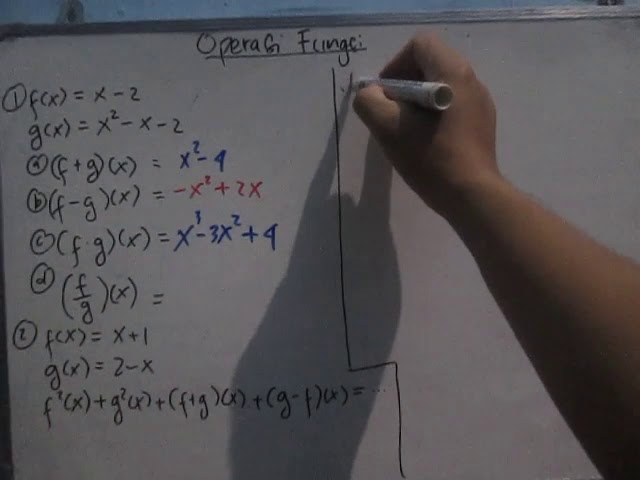 Operasi Fungsi
① f(x) = x - 2
g(x) = x² - x - 2
ⓐ (f+g)(x) = x² - 4
ⓑ (f-g)(x) = -x² + 2x
ⓒ (f·g)(x) = x³ - 3x² + 4
ⓓ (f/g)(x) =
② f(x) = x+1
g(x) = 2-x
f²(x) + g²(x) + (f+g)(x) + (g-f)(x) = ...